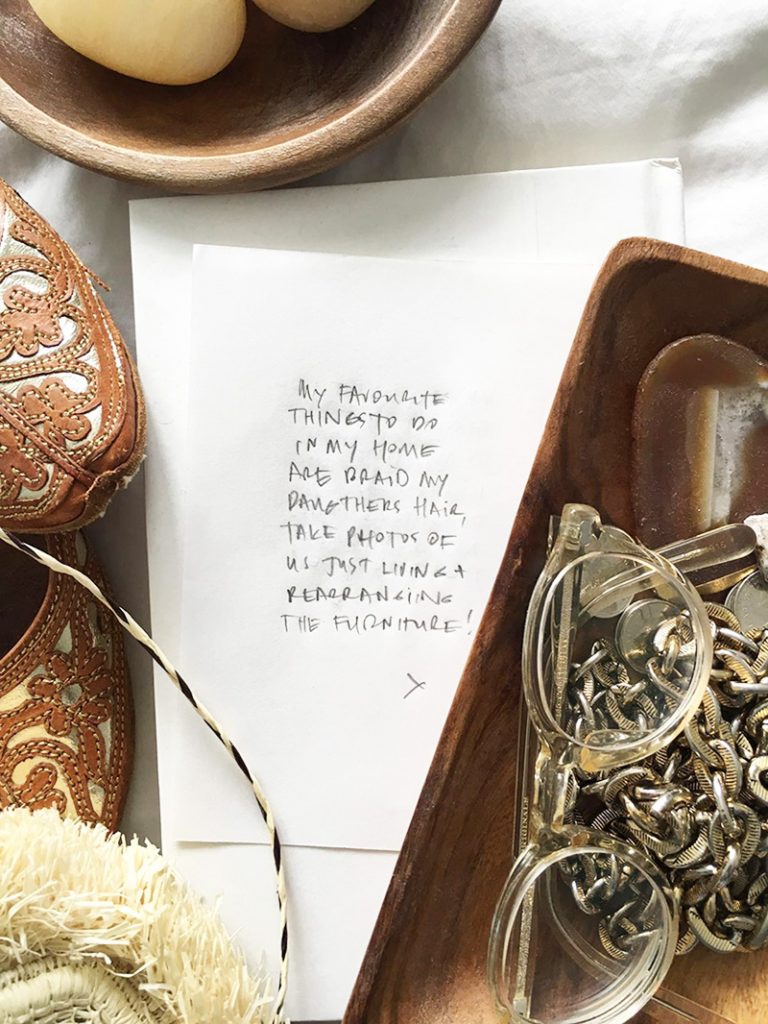 MY FAVOURITE
THINGS TO DO
IN MY HOME
ARE BRAID MY
DAUGTHERS HAIR,
TAKE PHOTOS OF
US JUST LIVING +
REARRANGING
THE FURNITURE!
X